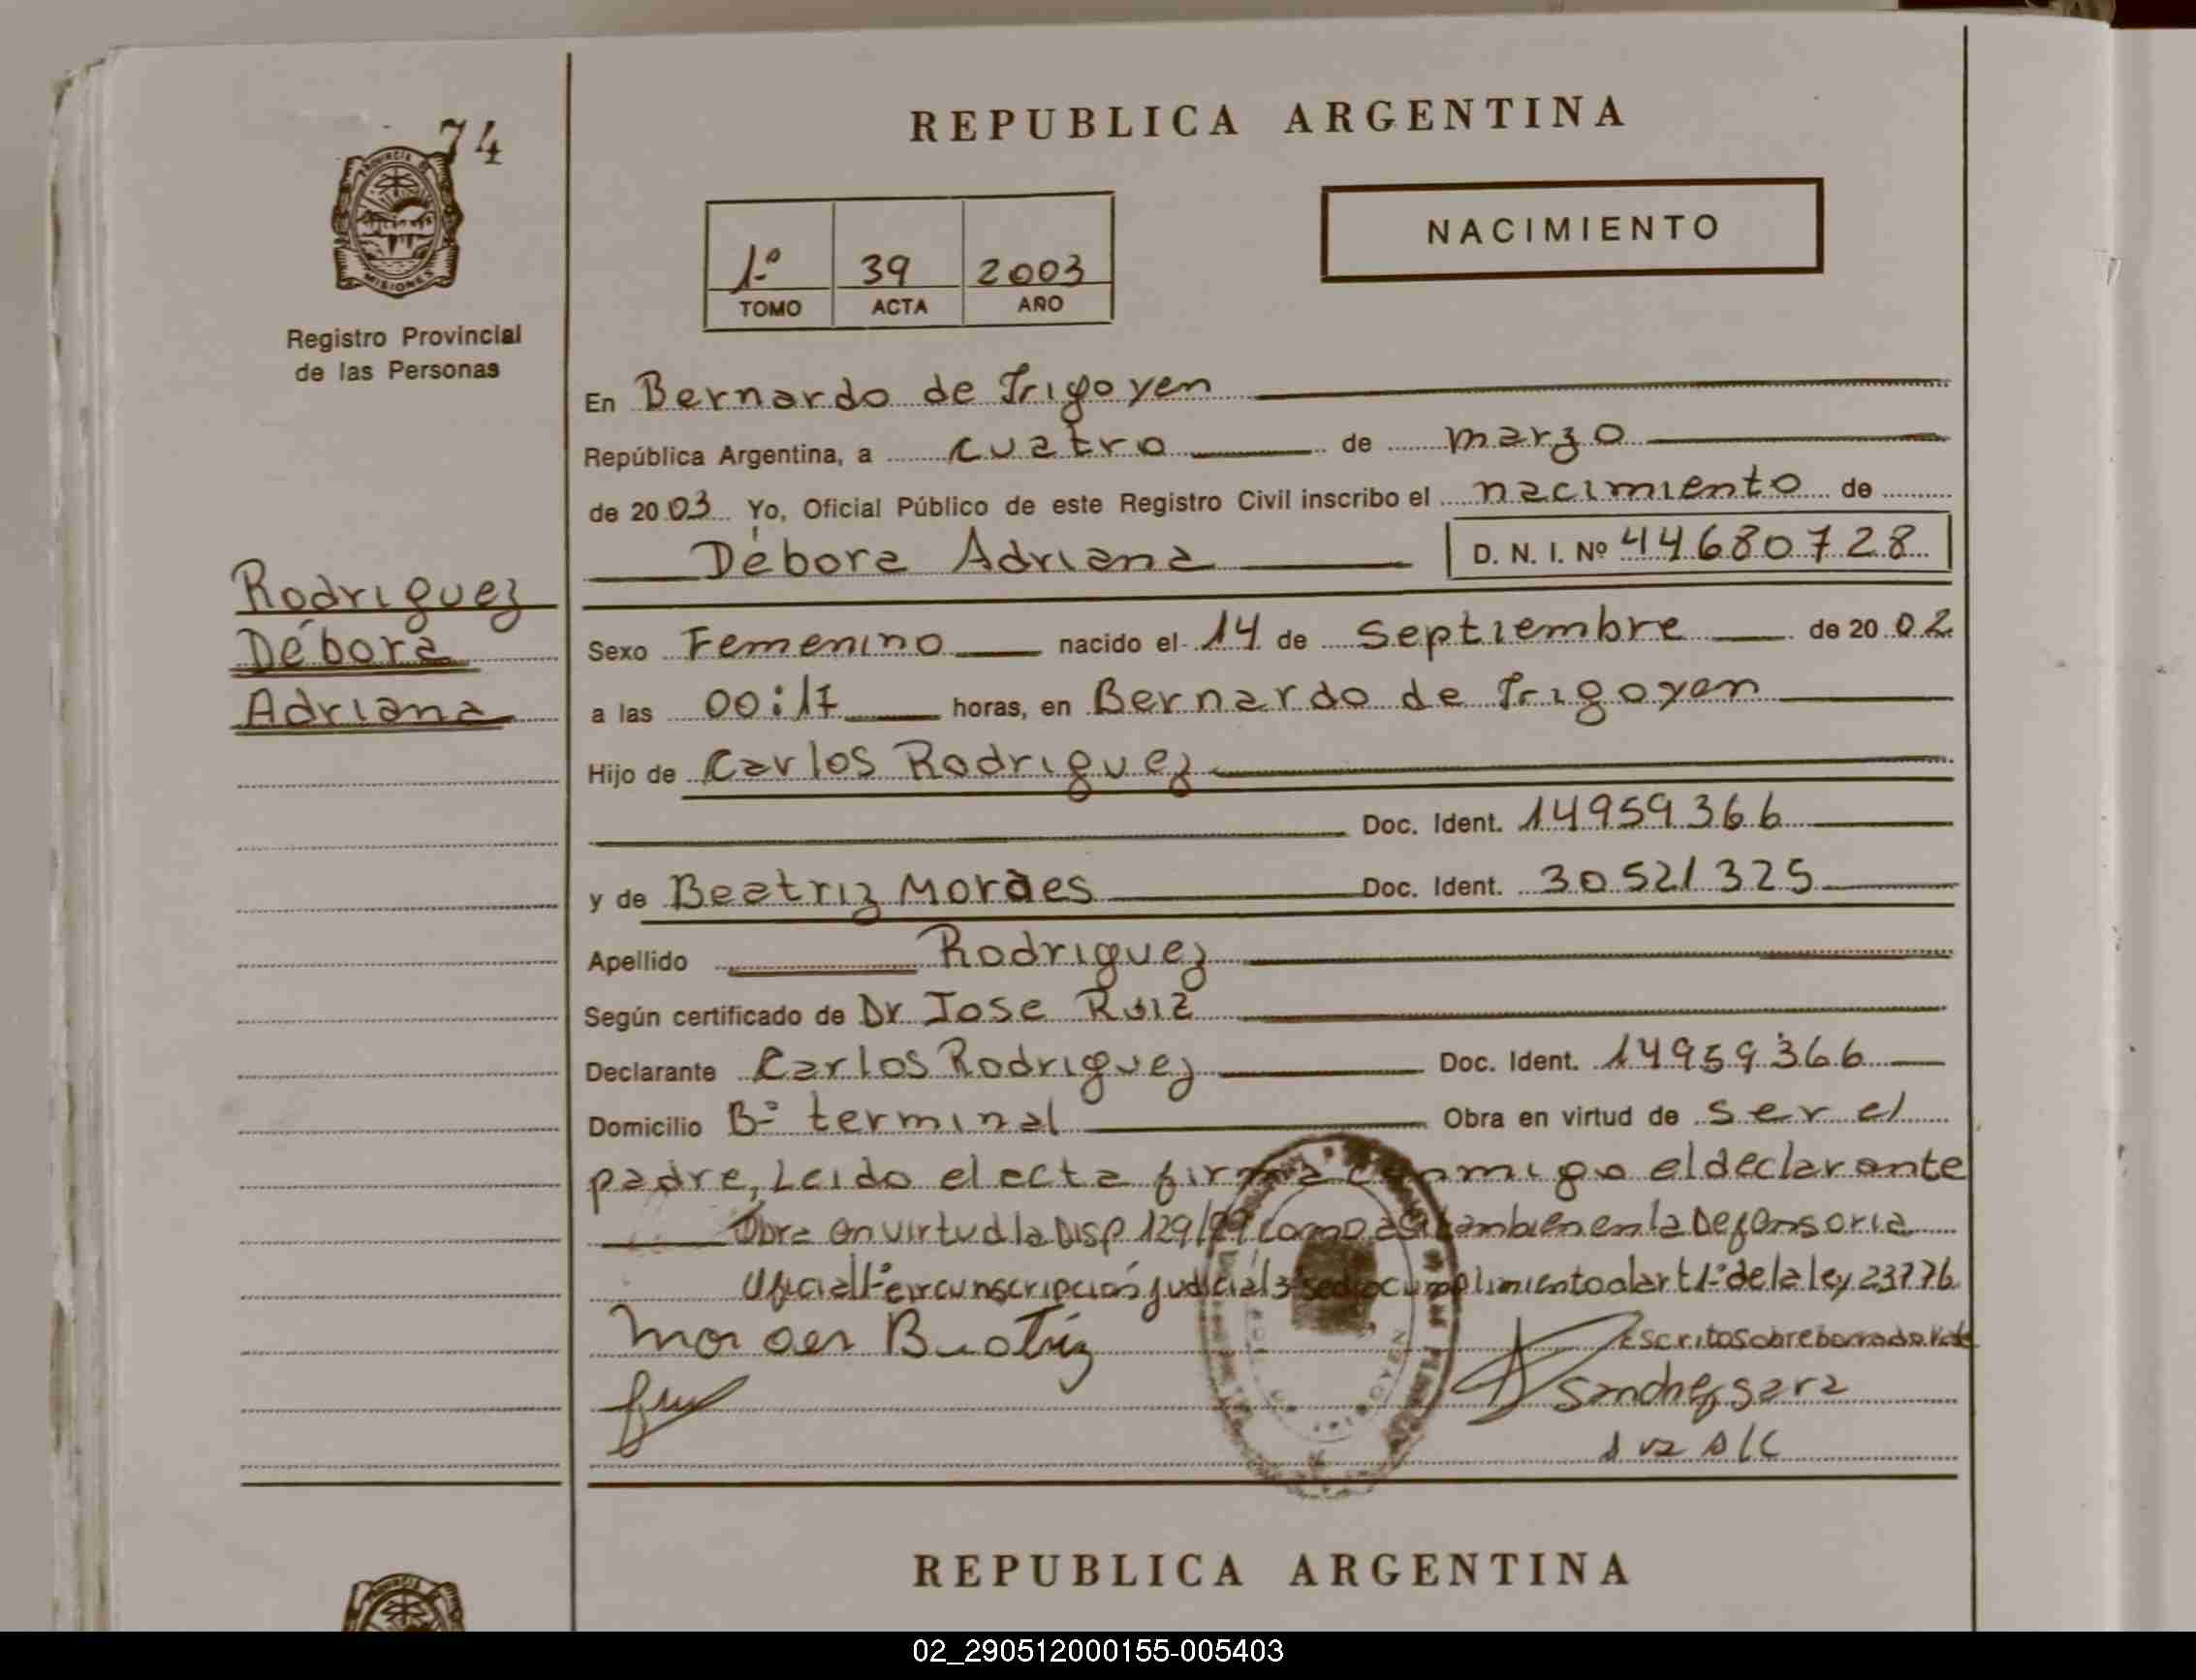 74
PROVINCIA DE
MISIONES
Registro Provincial
de las Personas
REPUBLICA ARGENTINA
1º 39 2003
TOMO ACTA AÑO
NACIMIENTO
En Bernardo de Irigoyen
República Argentina, a cuatro de marzo
de 2003 Yo, Oficial Público de este Registro Civil inscribo el nacimiento de
Débora Adriana D. N. I. Nº 44680728
Rodriguez
Débora
Adriana
Sexo Femenino nacido el 14 de Septiembre de 2002
a las 00:17 horas, en Bernardo de Irigoyen
Hijo de Carlos Rodriguez
Doc. Ident. 14959366
y de Beatriz Moraes Doc. Ident. 30521325
Apellido Rodriguez
Según certificado de Dr Jose Ruiz
Declarante Carlos Rodriguez Doc. Ident. 14959366
Domicilio Bº terminal Obra en virtud de ser el
padre, Leido el acta firma conmigo el declarante
Obra en virtud la Disp 129/99 como asi tambien en la Defensoria
Oficial 1º circunscripcion judicial 3 cumplimiento al art 1º de la ley 23776
Moraes Beatriz Escrito sobre borrado Vale
Sanchez Sara
REPUBLICA ARGENTINA
02_290512000155-005403